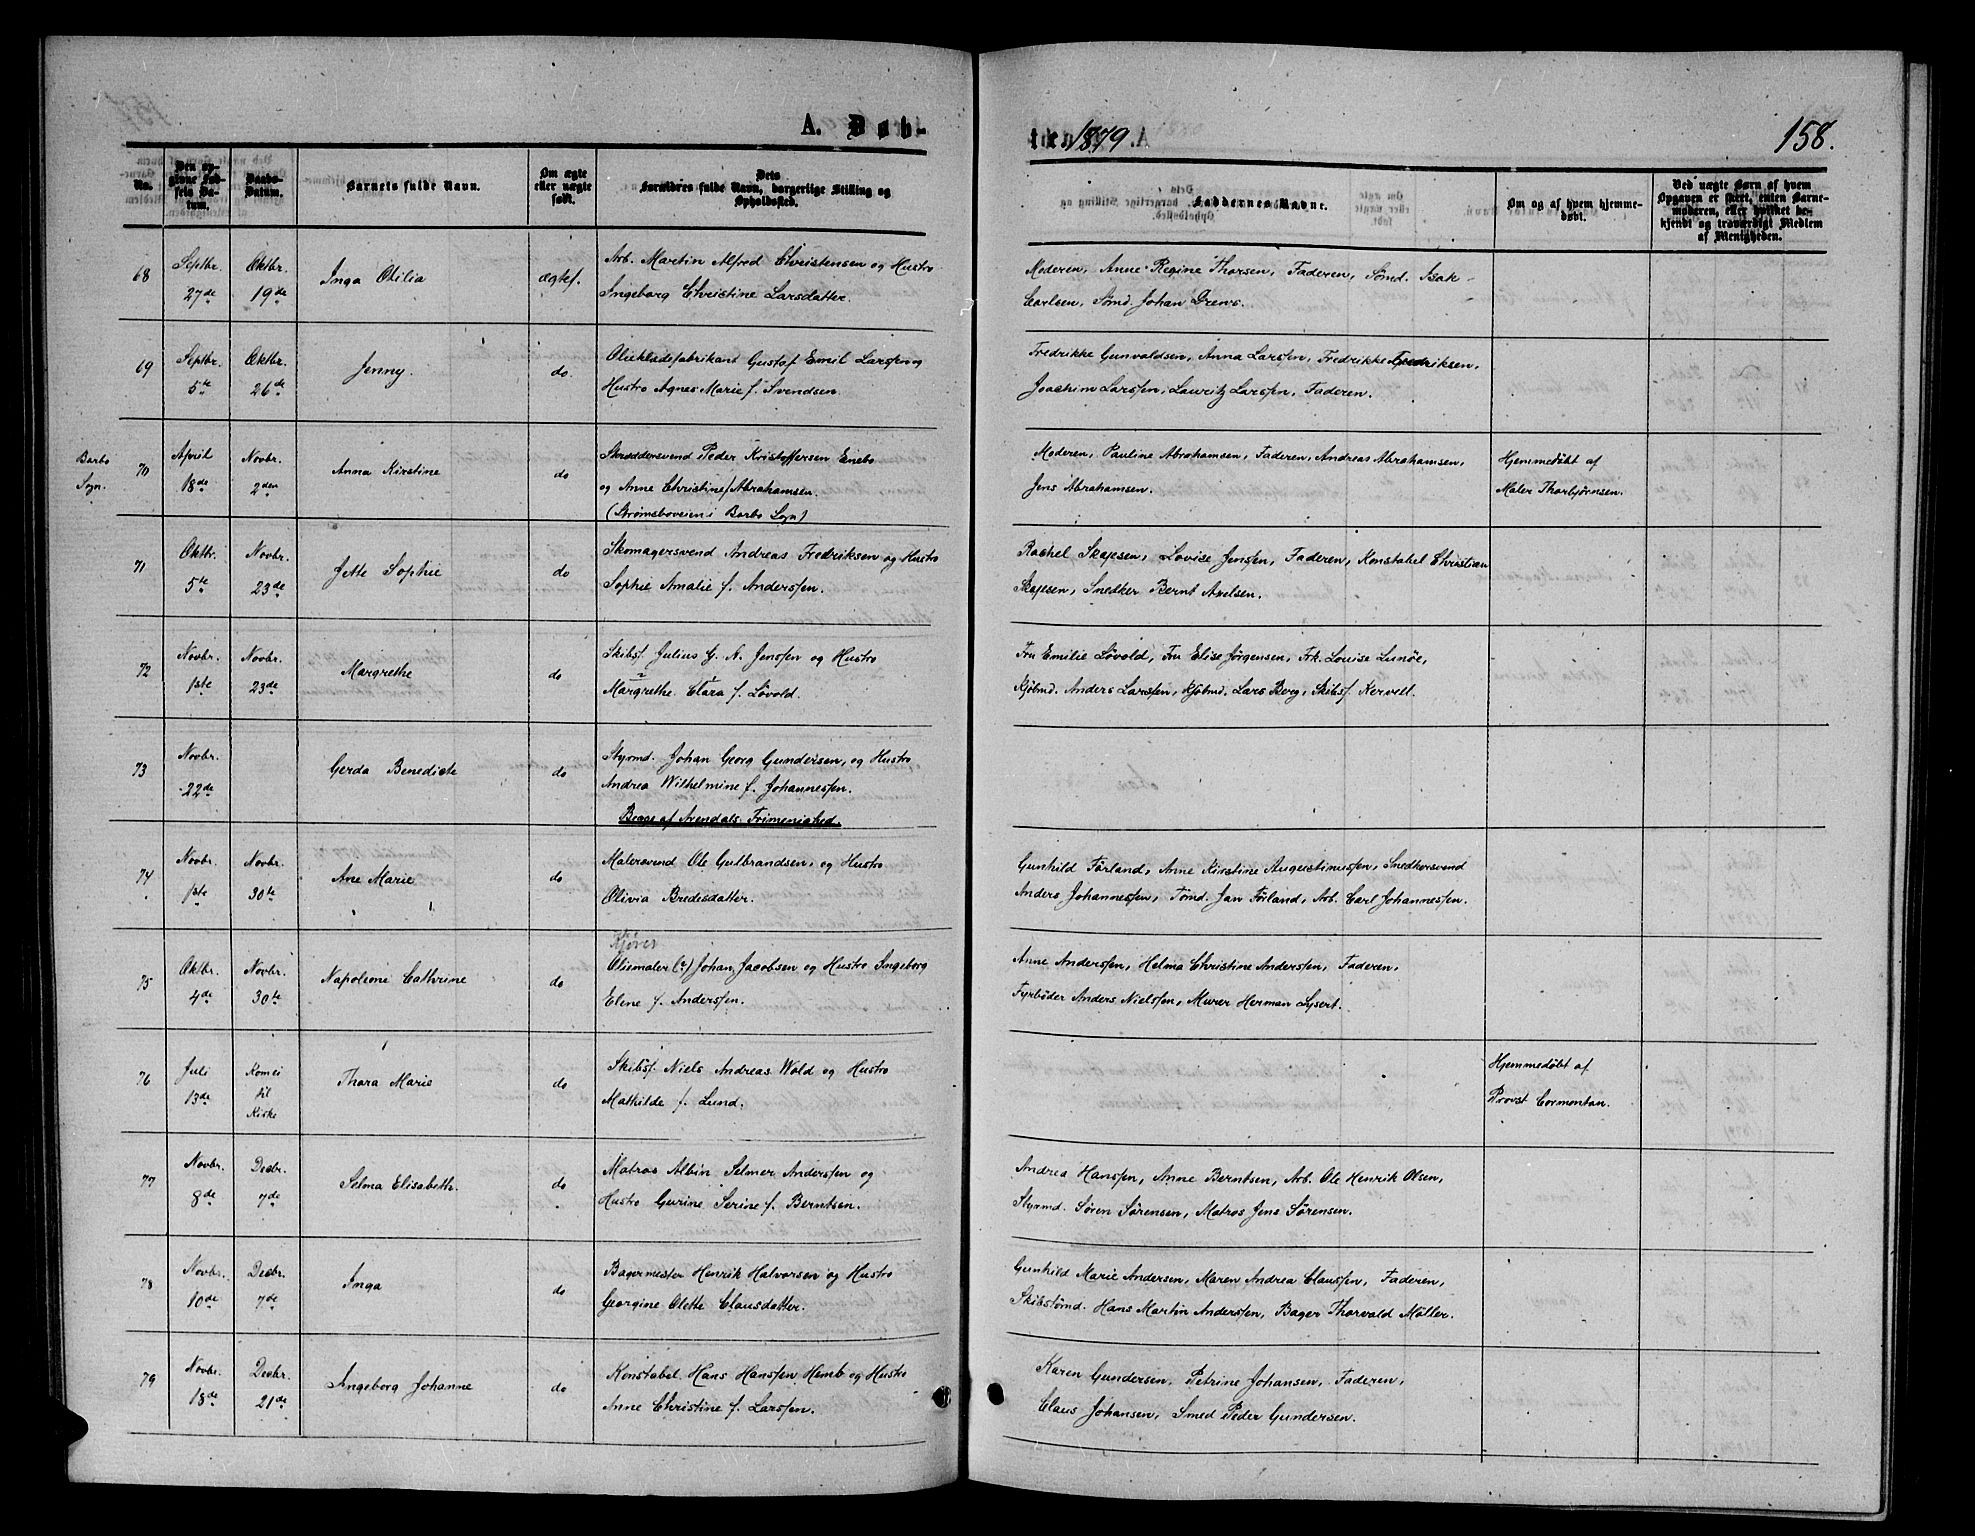 A. Døb-
te. 1879.
158.
No.
Den op-
givne Fød-
sels Da-
tum.
Daabs-
Datum.
Barnets fulde Navn.
Om ægte
eller uægte
født.
Dets
Forældres fulde Navn, borgerlige Stilling og
Opholdssted.
Faddernes Navne.
Om og af hvem hjemme-
døbt.
Ved uægte Børn af hvem
Opgaven er skeet, enten Barne-
moderen, eller hvilket be-
kjendt og troværdigt Medlem
af Menigheden.
68
Septbr.
27de
Oktbr.
19de
Inga Otilia
ægtef.
Arb. Martin Alfred Christensen og Hustro
Ingeborg Christine Larsdatter.
Moderen, Anne Regine Thorsen, Faderen, Sømd. Isak
Carlsen, Sømd. Johan Drews.
69
Septbr.
5te
Oktbr.
26de
Jenny.
do.
Olieklædefabrikant Gustaf Emil Larssen og
Hustro Agnes Marie f. Svendsen.
Fredrikke Gunvaldsen, Anna Larssen, Fredrikke Fredriksen,
Joachim Larssen, Lauritz Larssen, Faderen.
Barbo
Sogn.
70
April
18de
Novbr.
2den
Anna Kirstine
do
Skræddersvend Peder Kristoffersen Enebo
og Anne Christine f. Abrahamsen.
(Strømsboveien i Barbo Sogn)
Moderen, Pauline Abrahamsen, Faderen, Andreas Abrahamsen,
Jens Abrahamsen.
Hjemmedøbt af
Maler Thorbjørnsen.
71
Oktbr.
5te
Novbr.
23de
Jette Sophie
do
Skomagersvend Andreas Fredriksen og Hustro
Sophie Amalie f. Anderssen.
Rachel Skajesen, Lovise Jenssen, Faderen, Konstabel Christian
Skajesen, Snedker Bernt Axelsen.
72
Novbr.
1ste
Novbr.
23de
Margrethe
do
Skibsf. Julius G. N. Jenssen og Hustro
Margrethe Clara f. Løvold.
Fru Emilie Løvold, Fru Elise Jørgensen, Frk. Louise Lunøe,
Kjøbmd. Anders Larssen, Kjøbmd. Lars Berg, Skibsf. Kervell.
73
Novbr.
22de
Gerda Benedicte
do
Styrmd. Johan Georg Gundersen, og Hustro
Andrea Wilhelmine f. Johannessen.
Begge af Arendals Frimenighed.
74
Novbr.
1ste
Novbr.
30te
Ane Marie
do
Malersvend Ole Gulbrandsen, og Hustro
Olivia Bredesdatter.
Gunhild Førland, Anne Kirstine Augustinussen, Snedkersvend
Anders Johannessen, Tømd. Jan Førland, Arb. Carl Johannessen.
75
Oktbr.
4de
Novbr.
30te
Napoleone Cathrine
do
Oliemaler (?) Johan Jacobsen og Hustro Ingeborg
Elene f. Anderssen.
Anne Anderssen, Helma Christine Anderssen, Faderen,
Fyrbøder Anders Nielssen, Murer Herman Lysert.
76
Juli
13de
Komei
til
Kirke
Thora Marie
do
Skibsf. Niels Andreas Wold og Hustro
Mathilde f. Lund.
Hjemmedøbt af
Provst Cormontan.
77
Novbr.
8de
Decbr.
7de
Selma Elisabeth.
do
Matros Albin Selmer Anderssen og
Hustro Gurine Serine f. Berntsen.
Andrea Hanssen, Anne Berntsen, Arb. Ole Henrik Olsen,
Styrmd. Søren Sørensen, Matros Jens Sørensen.
78
Novbr.
10de
Decbr.
7de
Inga
do
Bagermester Henrik Halvorsen og Hustro
Georgine Olette Clausdatter.
Gunhild Marie Andersen, Maren Andrea Claussen, Faderen,
Skibstømd. Hans Martin Anderssen, Bager Thorvald Møller.
79
Novbr.
18de
Decbr.
21de
Ingeborg Johanne
do
Konstabel Hans Hanssen Hemb og Hustro
Anne Christine f. Larssen.
Karen Gundersen, Petrine Johansen, Faderen,
Claus Johansen, Smed Peder Gundersen.